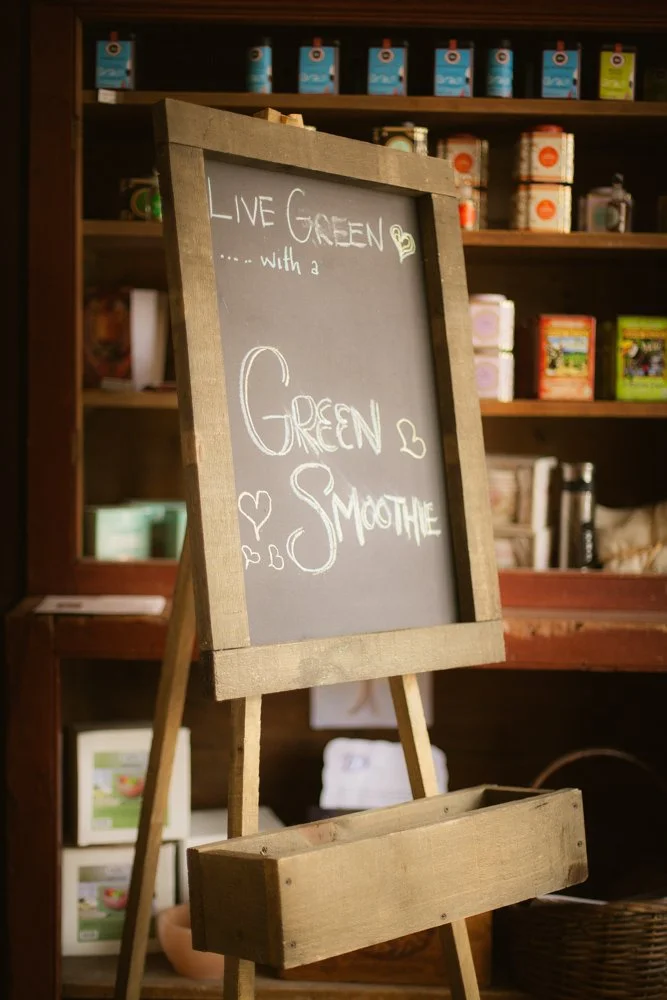 LIVE GREEN
..... with a
GREEN
SMOOTHIE